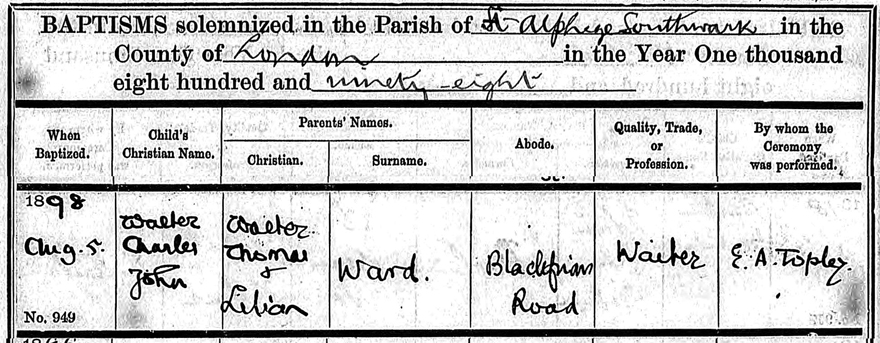 BAPTISMS solemnized in the Parish of St Alphege Southwark in the
County of London in the Year One thousand
eight hundred and ninety-eight
When Baptized.
Child's Christian Name.
Parents' Names.
Christian.
Surname.
Abode.
Quality, Trade, or Profession.
By whom the Ceremony was performed.
1898
Aug. 5.
No. 949
Walter
Charles
John
Walter
Thomas
+
Lilian
Ward.
Blackfriars
Road
Waiter
E. A. Topley.